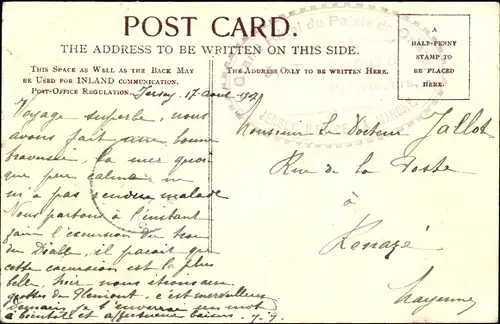 POST CARD.
THE ADDRESS TO BE WRITTEN ON THIS SIDE.
THIS SPACE AS WELL AS THE BACK MAY
BE USED FOR INLAND COMMUNICATION.
POST-OFFICE REGULATION.
THE ADDRESS ONLY TO BE WRITTEN HERE.
A
HALF-PENNY
STAMP TO
BE PLACED
HERE.
Jersey, 17 août
Voyage superbe, nous
avons fait une bonne
traversée, la mer quoi
que peu calme ne
m'a pas rendue malade
Nous partons à l'instant
faire l'excursion du trou
du Diable, il parait que
cette excursion est la plus
belle, hier nous étions aux
grottes de Plemont, c'est merveilleux
Demain je t'enverrai un mot
à bientôt et affectueux baisers.
Monsieur Le Docteur Jallot
Rue de la Poste
à
Renazé
Mayenne